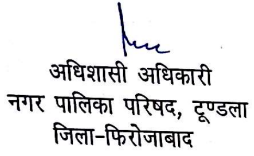 अधिशासी अधिकारी
नगर पालिका परिषद, टूण्डला
जिला-फिरोजाबाद